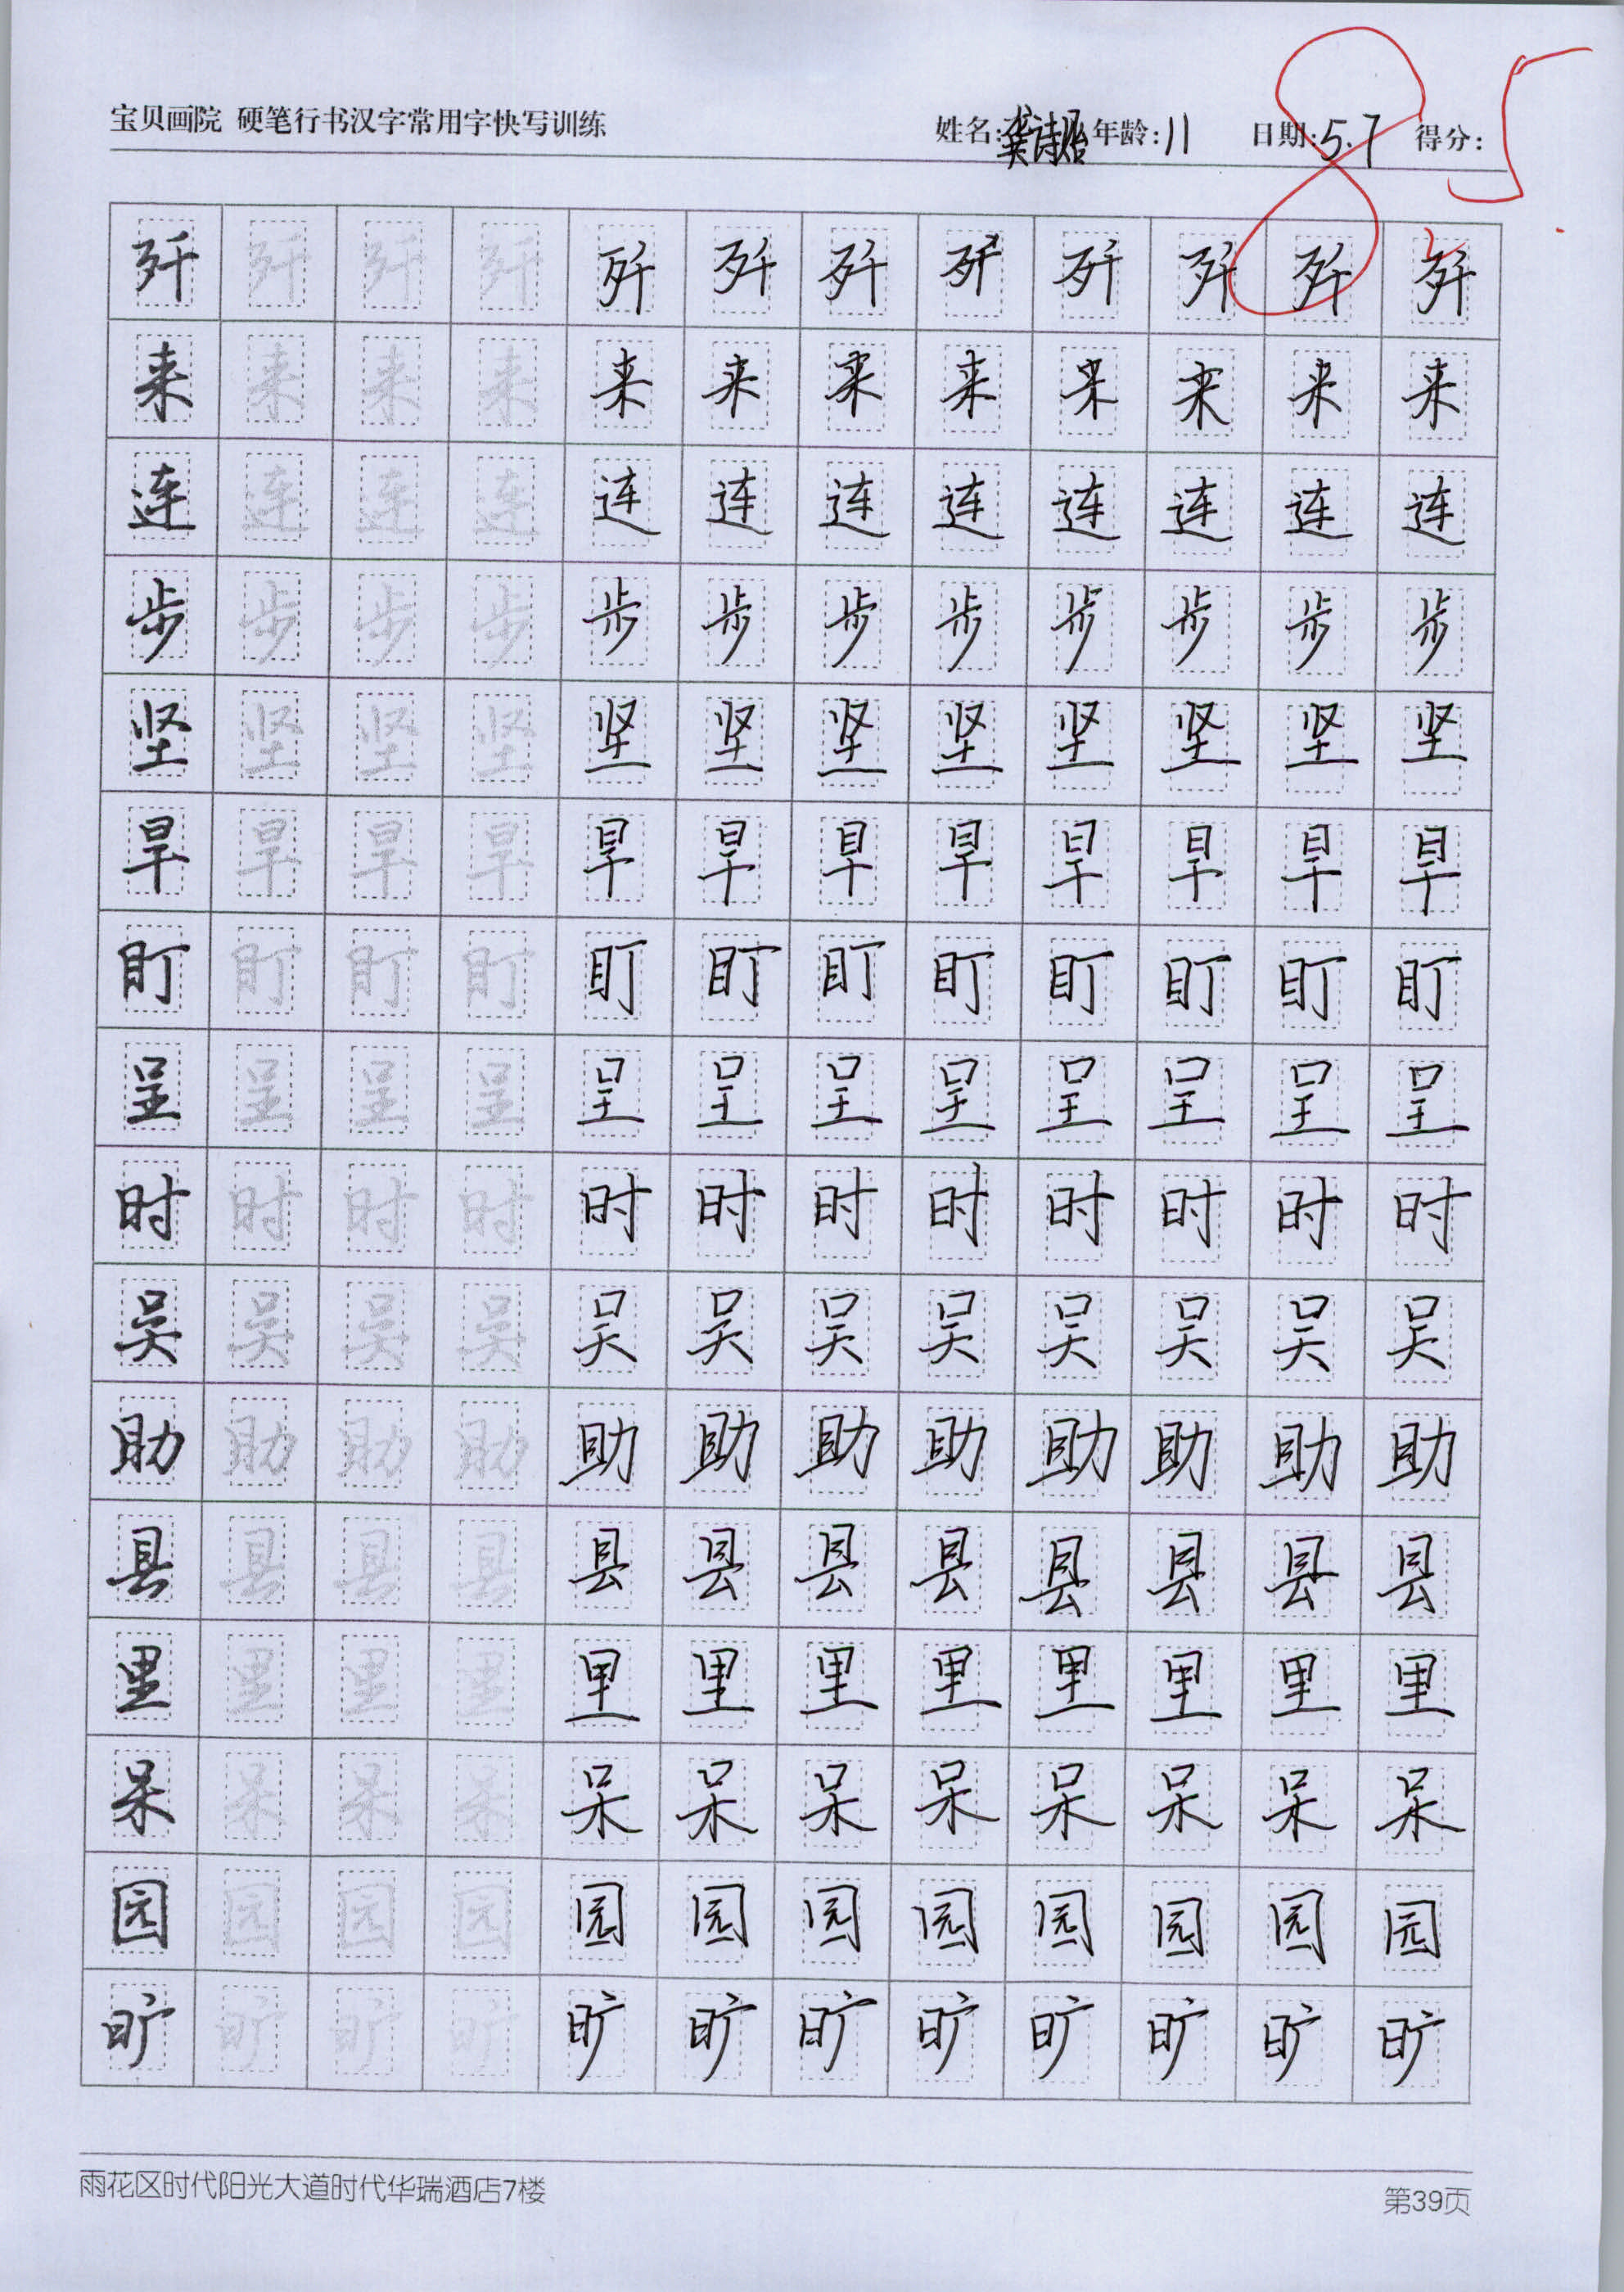 宝贝画院 硬笔行书汉字常用字快写训练 姓名:龚诗贻 年龄:11 日期:5.7 得分:85
歼 歼 歼 歼 歼 歼 歼 歼 歼 歼 歼 歼
来 来 来 来 来 来 来 来 来 来 来 来
连 连 连 连 连 连 连 连 连 连 连 连
步 步 步 步 步 步 步 步 步 步 步 步
坚 坚 坚 坚 坚 坚 坚 坚 坚 坚 坚 坚
旱 旱 旱 旱 旱 旱 旱 旱 旱 旱 旱 旱
盯 盯 盯 盯 盯 盯 盯 盯 盯 盯 盯 盯
呈 呈 呈 呈 呈 呈 呈 呈 呈 呈 呈 呈
时 时 时 时 时 时 时 时 时 时 时 时
吴 吴 吴 吴 吴 吴 吴 吴 吴 吴 吴 吴
助 助 助 助 助 助 助 助 助 助 助 助
县 县 县 县 县 县 县 县 县 县 县 县
里 里 里 里 里 里 里 里 里 里 里 里
呆 呆 呆 呆 呆 呆 呆 呆 呆 呆 呆 呆
园 园 园 园 园 园 园 园 园 园 园 园
旷 旷 旷 旷 旷 旷 旷 旷 旷 旷 旷 旷
雨花区时代阳光大道时代华瑞酒店7楼 第39页